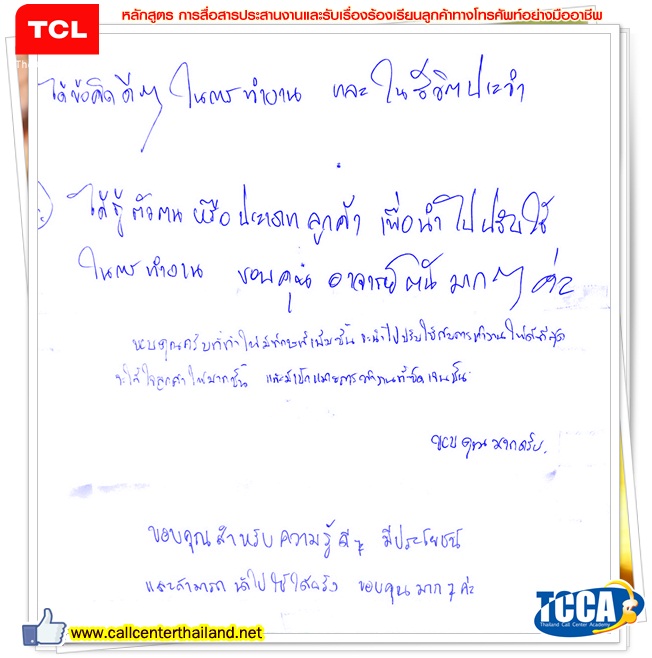 TCL
หลักสูตร การสื่อสารประสานงานและรับเรื่องร้องเรียนลูกค้าทางโทรศัพท์อย่างมืออาชีพ
ได้ข้อคิดดีๆ ในการทำงาน และในชีวิตประจำ
ได้รู้ตัวตน หรือประเภทลูกค้า เพื่อนำไปปรับใช้
ในการทำงาน ขอบคุณ อาจารย์ มากๆ ค่ะ
ขอบคุณครับที่ทำให้มีทักษะเพิ่มขึ้น จะนำไปปรับใช้กับการทำงานให้ดีที่สุด
จะใส่ใจลูกค้าให้มากขึ้น และมีเป้าหมายการทำงานที่ชัดเจนขึ้น
ขอบคุณมากครับ.
ขอบคุณสำหรับความรู้ดีๆ มีประโยชน์
และสามารถนำไปใช้ได้จริง ขอบคุณมากๆ ค่ะ
www.callcenterthailand.net
TCCA
Thailand Call Center Academy